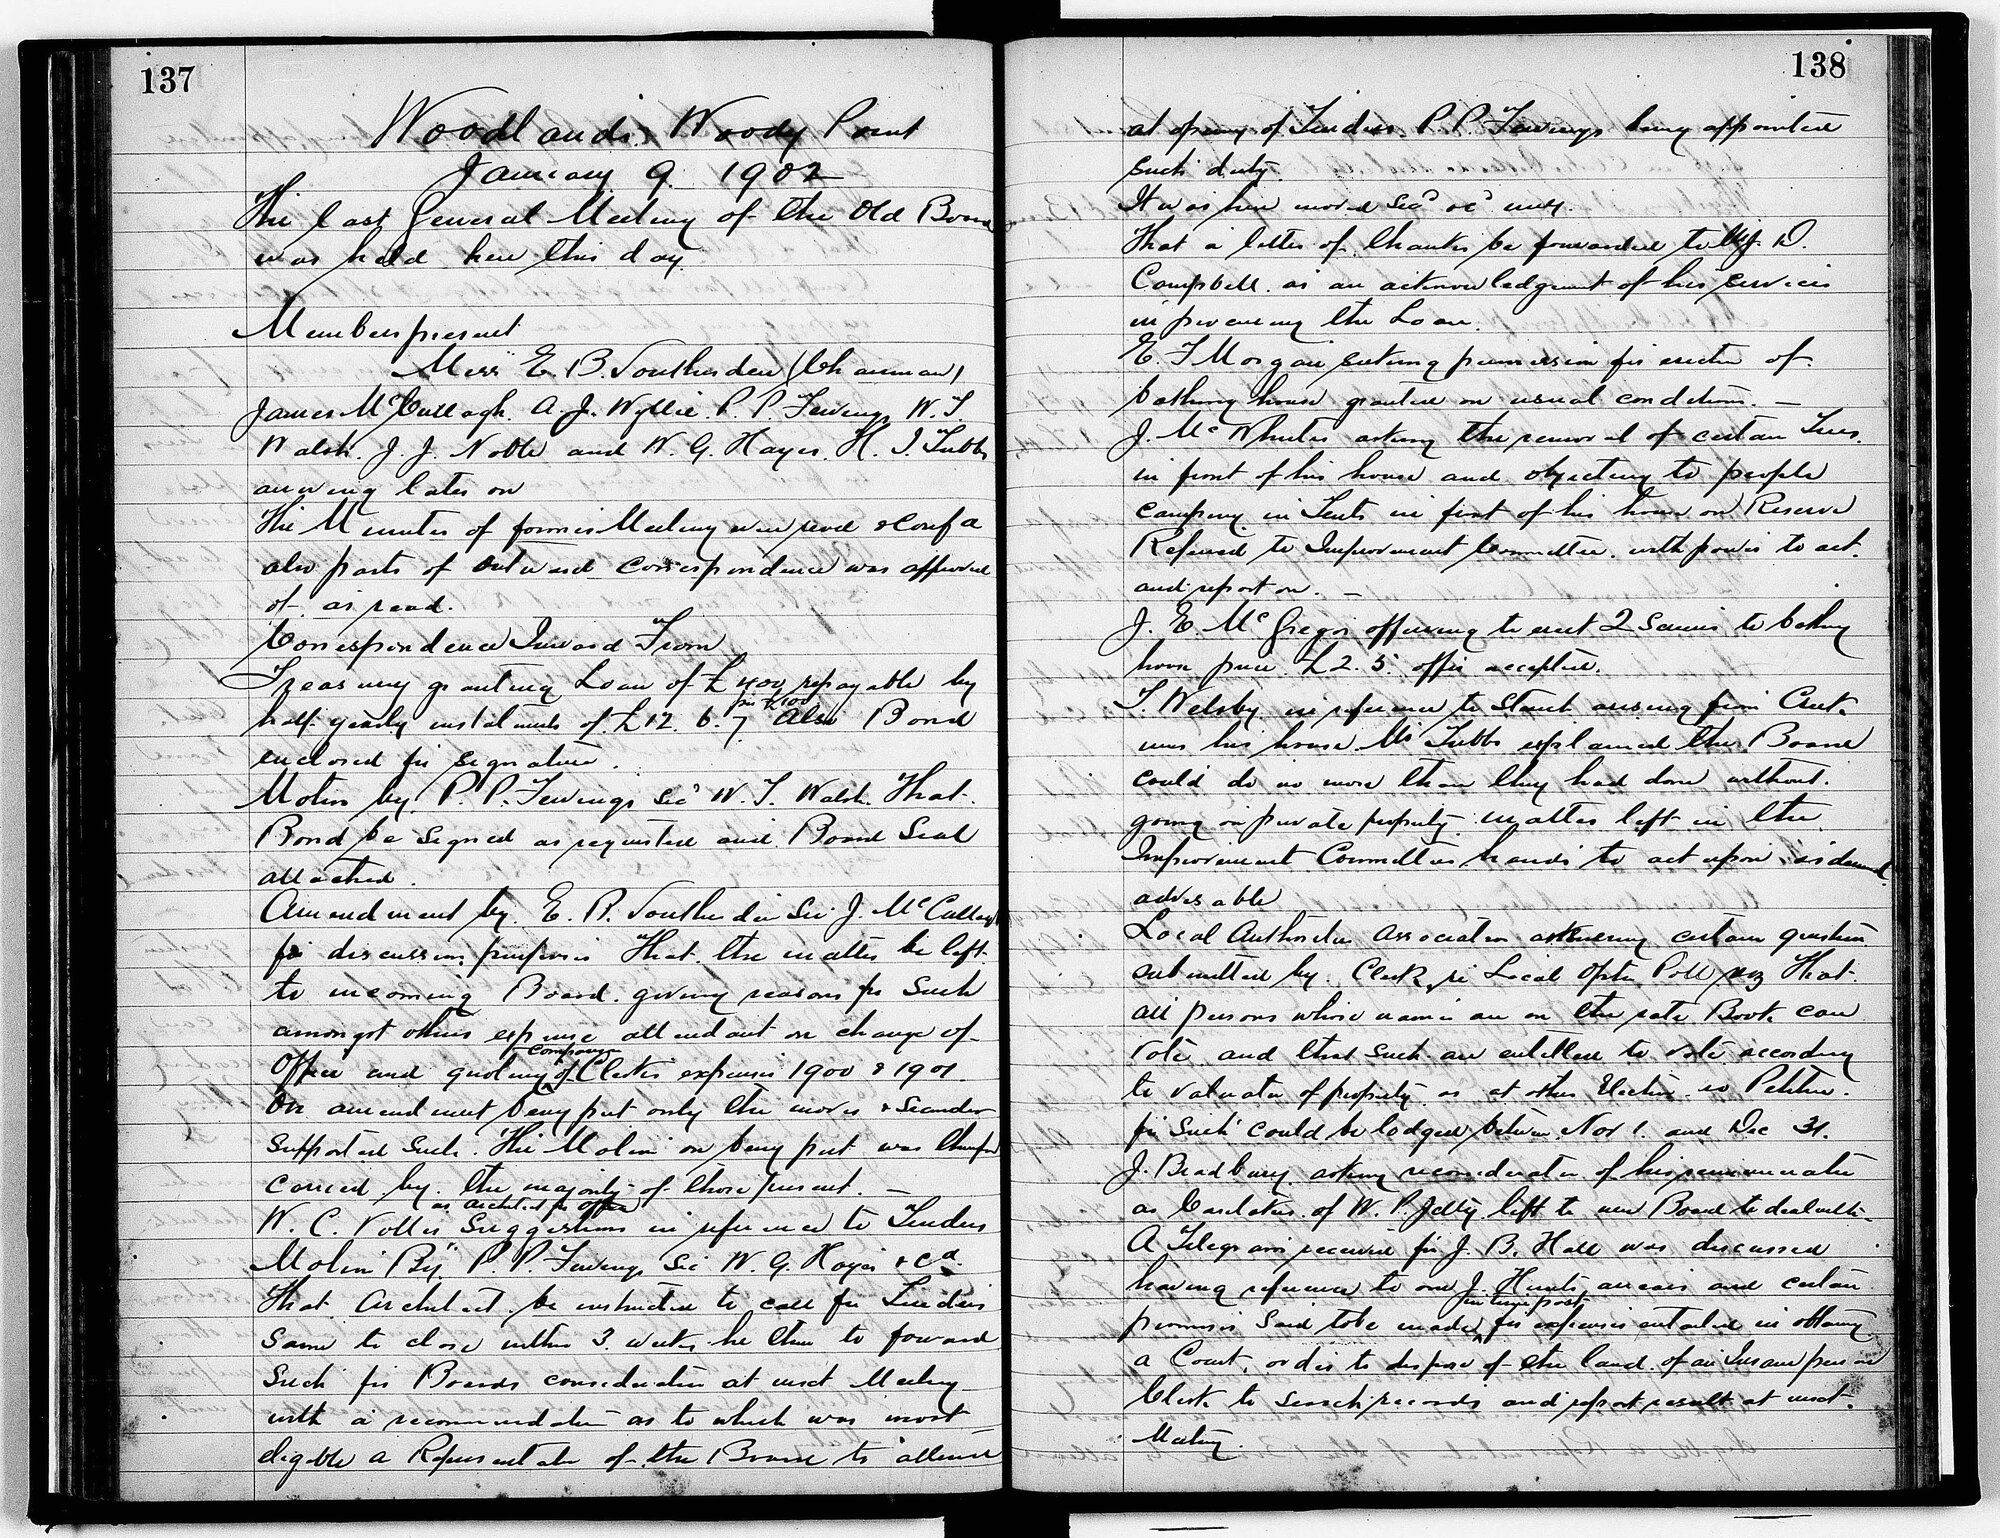 137
Woodlands. Woody Point
January 9. 1902
The last General Meeting of the Old Board
was held here this day.
Members present
Messrs E. B. Southerden (Chairman)
James McCullagh. A. J. Wyllie. P. P. Fewings W. T
Walsh. J. J. Noble and W. G. Hayes. H. I. Tubbs
arriving later on
The Minutes of former Meeting were read & conf d
also parts of outward correspondence was approved
of as read.
Correspondence Inward From
Treasury granting Loan of £400 repayable by
half yearly instalments of £12. 6. 7 per £100 Also Bond
enclosed for signature.
Motion by P. P. Fewings Sec d W. T. Walsh. That.
Bond be signed as requested and Board Seal
attached.
Amendment by E. B. Southerden Sec J. McCullagh
for discussion purposes That the matter be left
to incoming Board. giving reasons for such
amongst others expense attendant on change of
Office and quoting comparison of Clerks expenses 1900 & 1901.
On amendment being put only the mover & Seconder
supported such. The Motion on being put was therefor
carried by the majority of those present. —
W. C. Voller as architect for office Suggestions in reference to Tenders
Motion By P. P. Fewings Sec W. G. Hayes & Cd.
That Architect be instructed to call for Tenders
same to close within 3 weeks he then to forward
such for Boards consideration at next Meeting
with a recommendation as to which was most
eligible a Representative of the Board to attend
138
at opening of Tenders. P. P. Fewings being appointed
such duty.
It was here moved Sec d &c
That a letter of thanks be forwarded to D.
Campbell. as an acknowledgment of his services
in procuring the Loan.
E. T Morgan asking permission for erection of
bathing house granted on usual conditions. —
J. McWhirter asking the removal of certain Trees
in front of his house and objecting to people
camping in Tents in front of his house on Reserve
Referred to Improvement Committee. with power to act.
and report on. —
J. E. McGregor offering to erect 2 Screens to bathing
house price £2. 5. offer accepted.
T. Welsby in reference to Stench arising from Creek
near his house. Mr Tubbs explained the Board
could do no more than they had done without.
going on private property. matter left in the
Improvement Committees hands to act upon as deemed
advisable
Local Authorities Association answering certain questions
submitted by Clerk, re Local Option Poll viz That.
all persons whose names are on the rate Book can
vote and that such are entitled to vote according
to valuation of property as at other Elections. no Petition.
for such could be lodged between Nov 1. and Dec 31.
J. Bradbury asking reconsideration of his remuneration
as Caretaker of W. P. Jetty left to new Board to deal with.
A Telegram received for J. B. Hall was discussed
having reference to one J. Hunts arrears and certain
promises said to be made in time past for expenses entailed in obtaining
a Court order to dispose of the land of an Insane person
Clerk to search records and report result at next.
Meeting.